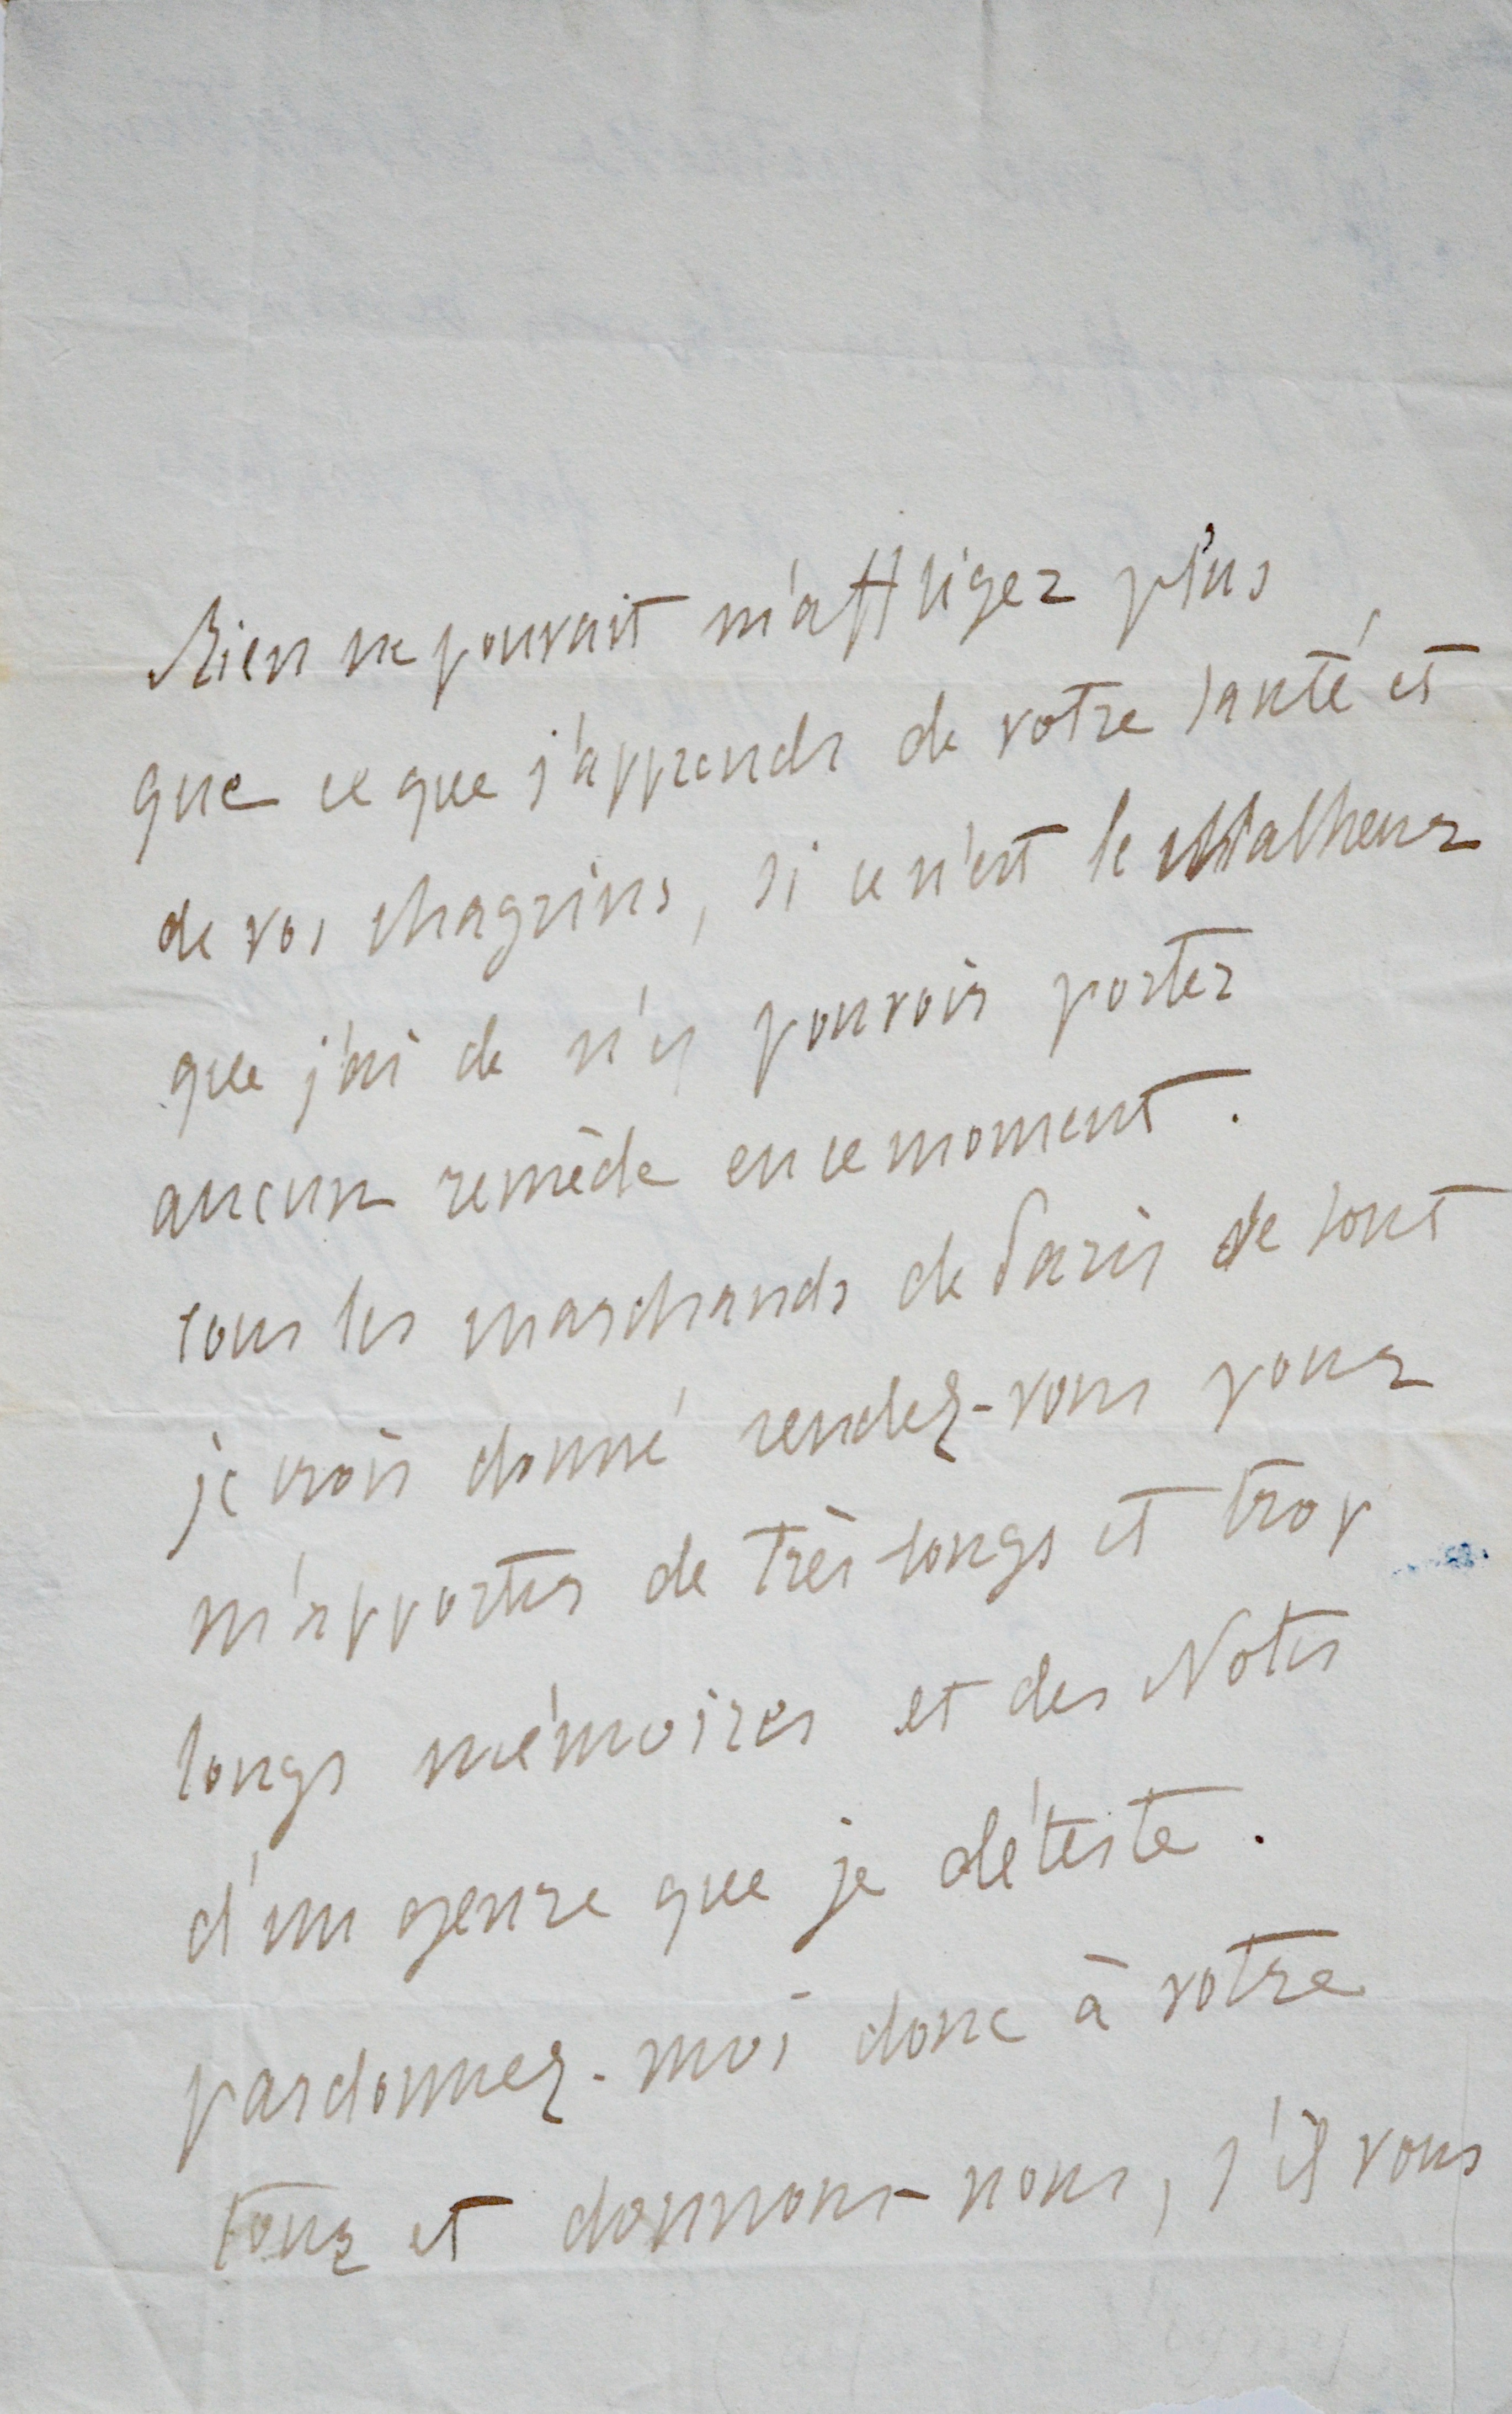 Rien ne pouvait m'affliger plus
que ce que j'apprends de votre santé et
de vos chagrins, si ce n'est le Malheur
que j'ai de n'y pouvoir porter
aucun remède en ce moment.
tous les marchands de Paris se sont
je crois donné rendez-vous pour
m'apporter de très longs et trop
longs mémoires et des Notes
d'un genre que je déteste.
pardonnez-moi donc à votre
tour et donnons-nous, s'il vous